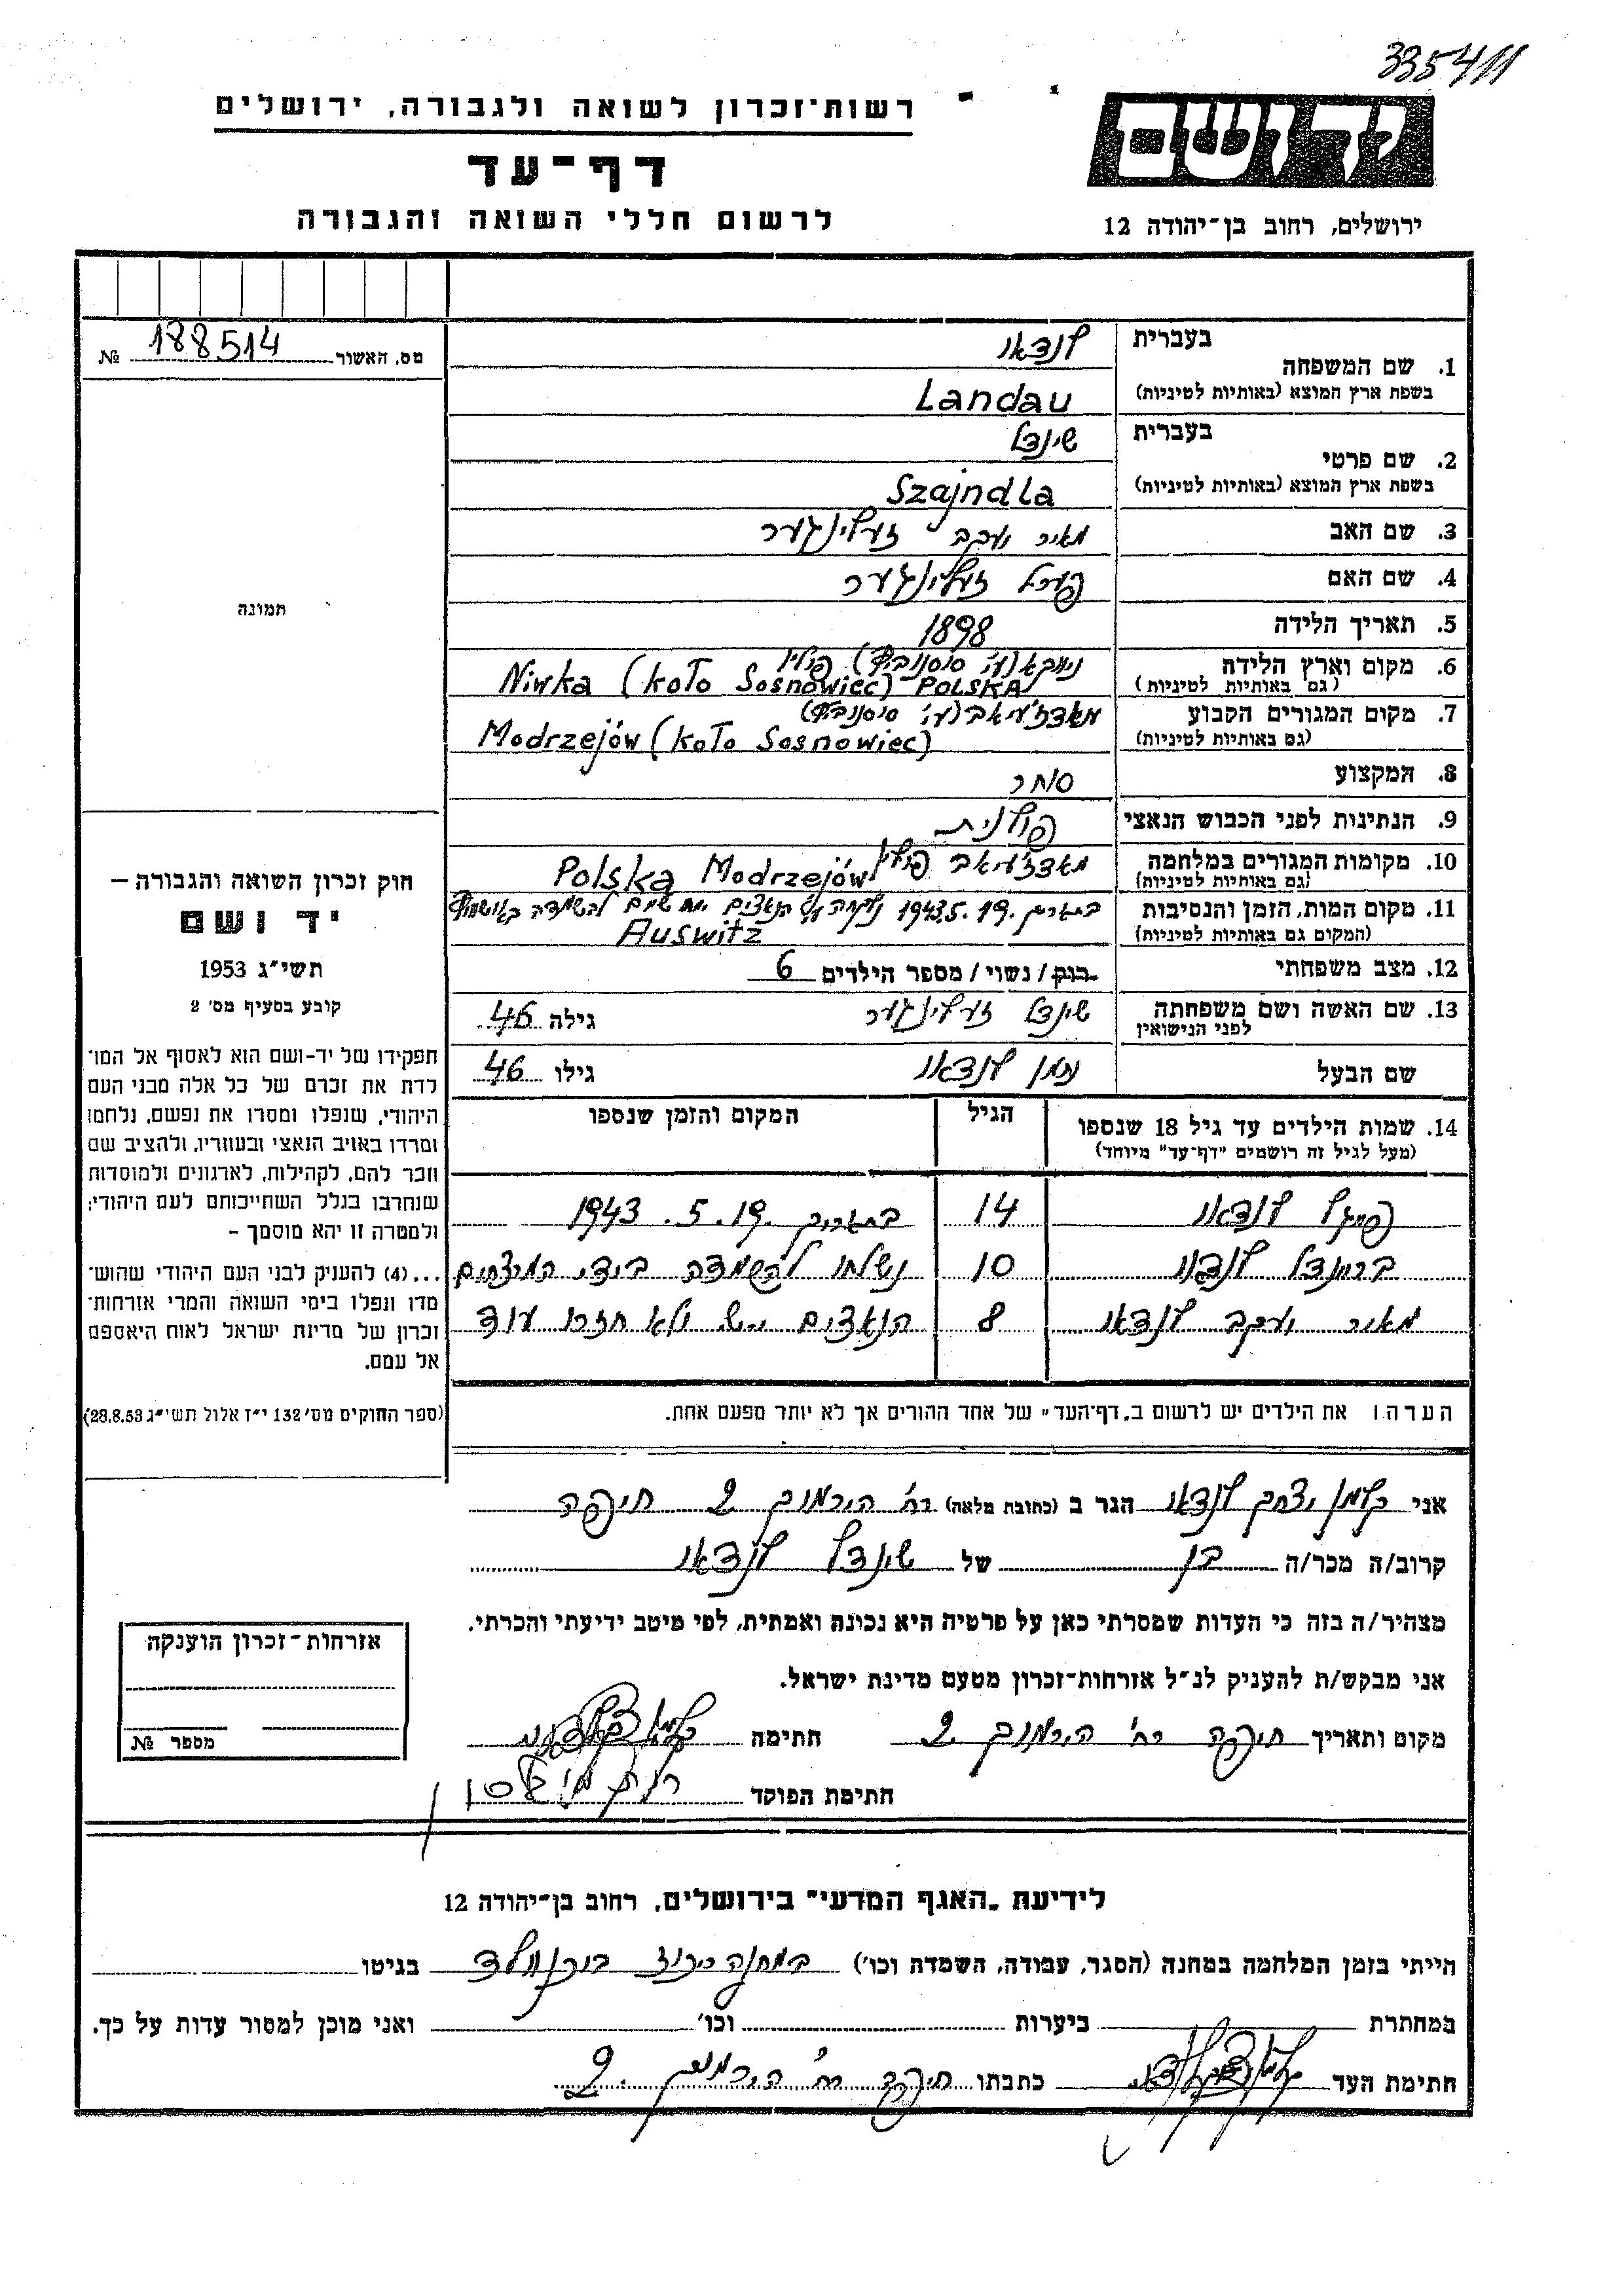 335411
ידושם
רשות-זכרון לשואה ולגבורה, ירושלים
דף-עד
לרשום חללי השואה והגבורה
ירושלים, רחוב בן-יהודה 12
מס. האשור 188514 №
תמונה
1. שם המשפחה
בעברית לנדאו
בשפת ארץ המוצא (באותיות לטיניות) Landau
2. שם פרטי
בעברית שינדל
בשפת ארץ המוצא (באותיות לטיניות) Szajndla
3. שם האב מאיר יעקב זעלינגער
4. שם האם פערל זעלינגער
5. תאריך הלידה 1898
6. מקום וארץ הלידה (ע"י סוסנוביץ) פולין
(גם באותיות לטיניות) Niwka (koło Sosnowiec) POLSKA
7. מקום המגורים הקבוע
(גם באותיות לטיניות) Modrzejów (koło Sosnowiec)
8. המקצוע סוחר
9. הנתינות לפני הכבוש הנאצי פולנית
10. מקומות המגורים במלחמה פולין
(גם באותיות לטיניות) Polska Modrzejów
11. מקום המות, הזמן והנסיבות בתאריך 19.5.1943 נלקחה ע"י הנאצים ימח שמם להשמדה באושוויץ
(המקום גם באותיות לטיניות) Auswitz
12. מצב משפחתי רוק / נשוי / מספר הילדים 6
13. שם האשה ושם משפחתה שינדל זעלינגער גילה 46
לפני הנישואין
שם הבעל לנדאו גילו 46
14. שמות הילדים עד גיל 18 שנספו הגיל המקום והזמן שנספו
(מעל לגיל זה רושמים "דף-עד" מיוחד)
לנדאו 14 בתאריך 19.5.1943
לנדאו 10 נשלחו להשמדה בידי המרצחים
מאיר יעקב לנדאו 8 הנאצים ימ"ש ולא חזרו עוד
הערה: את הילדים יש לרשום ב„דף-העד" של אחד ההורים אך לא יותר מפעם אחת.
חוק זכרון השואה והגבורה —
יד ושם
תשי"ג 1953
קובע בסעיף מס' 2
תפקידו של יד-ושם הוא לאסוף אל המו־
לדת את זכרם של כל אלה מבני העם
היהודי, שנפלו ומסרו את נפשם, נלחמו
ומרדו באויב הנאצי ובעוזריו, ולהציב שם
וזכר להם, לקהילות, לארגונים ולמוסדות
שנחרבו בגלל השתייכותם לעם היהודי;
ולמטרה זו יהא מוסמך –
...(4) להעניק לבני העם היהודי שהוש־
מדו ונפלו בימי השואה והמרי אזרחות־
זכרון של מדינת ישראל לאות היאספם
אל עמם.
(ספר החוקים מס' 132 י"ז אלול תשי"ג 28.8.53)
אני קלמן יצחק לנדאו הגר ב (כתובת מלאה) רח' הירמוך 2 חיפה
קרוב/ה מכר/ה בן של שינדל לנדאו
מצהיר/ה בזה כי העדות שמסרתי כאן על פרטיה היא נכונה ואמתית, לפי מיטב ידיעתי והכרתי.
אני מבקש/ת להעניק לנ"ל אזרחות-זכרון מטעם מדינת ישראל.
מקום ותאריך חיפה רח' הירמוך 2 חתימה
חתימת הפוקד
אזרחות-זכרון הוענקה
מספר №
לידיעת „האגף המדעי" בירושלים, רחוב בן-יהודה 12
הייתי בזמן המלחמה במחנה (הסגר, עבודה, השמדה וכו') במחנה ריכוז בוכנוולד בגיטו
במחתרת ביערות וכו' ואני מוכן למסור עדות על כך.
חתימת העד כתבתו חיפה רח' הירמוך 2